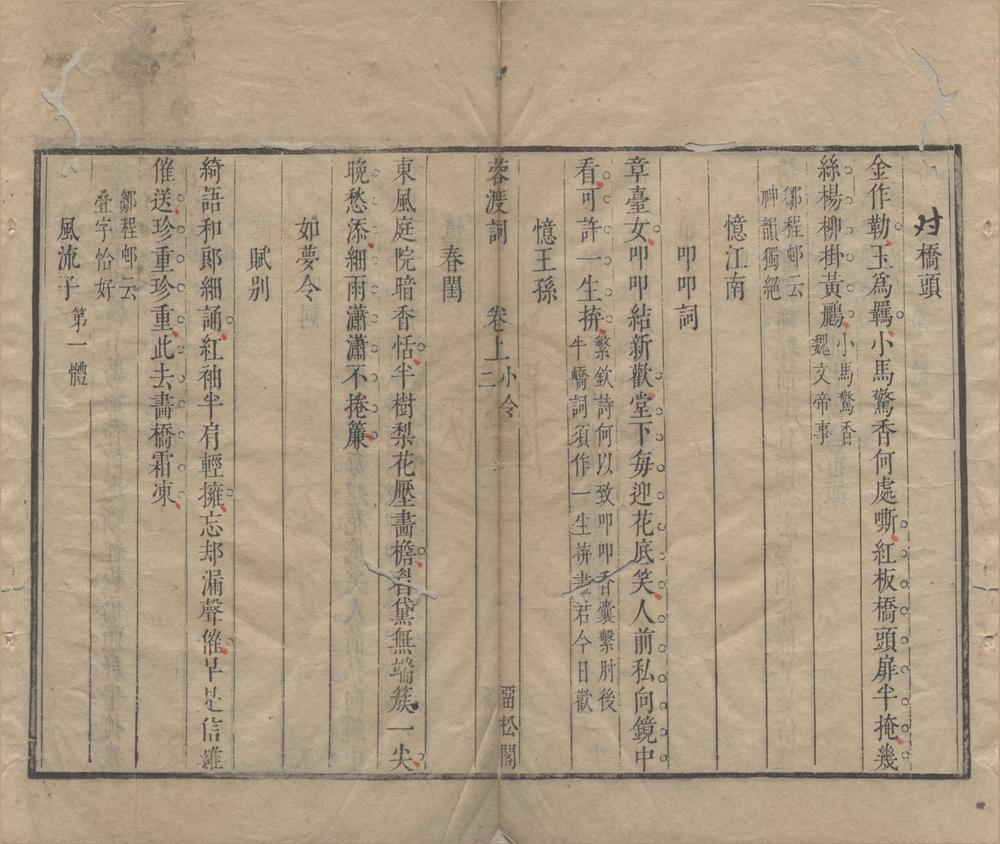 橋頭
金作勒玉爲羈小馬驚香何處嘶紅板橋頭扉半掩幾
絲楊柳掛黃鸝小馬驚香
魏文帝事
鄒程邨云
神韻獨絕
憶江南
叩叩詞
章臺女叩叩結新歡堂下每迎花底笑人前私向鏡中
看可許一生拚繁欽詩何以致叩叩香囊繫肘後
牛嶠詞須作一生拚盡君今日歡
憶王孫
蓉渡詞 卷上小令 二 畱松閣
春閨
東風庭院暗香恬半樹梨花壓畵檐眉黛無端簇一尖
晚愁添細雨瀟瀟不捲簾
如夢令
賦別
綺語和郎細誦紅袖半肩輕擁忘却漏聲催早是信難
催送珍重珍重此去畵橋霜凍
鄒程邨云
叠字恰好
風流子 第一體